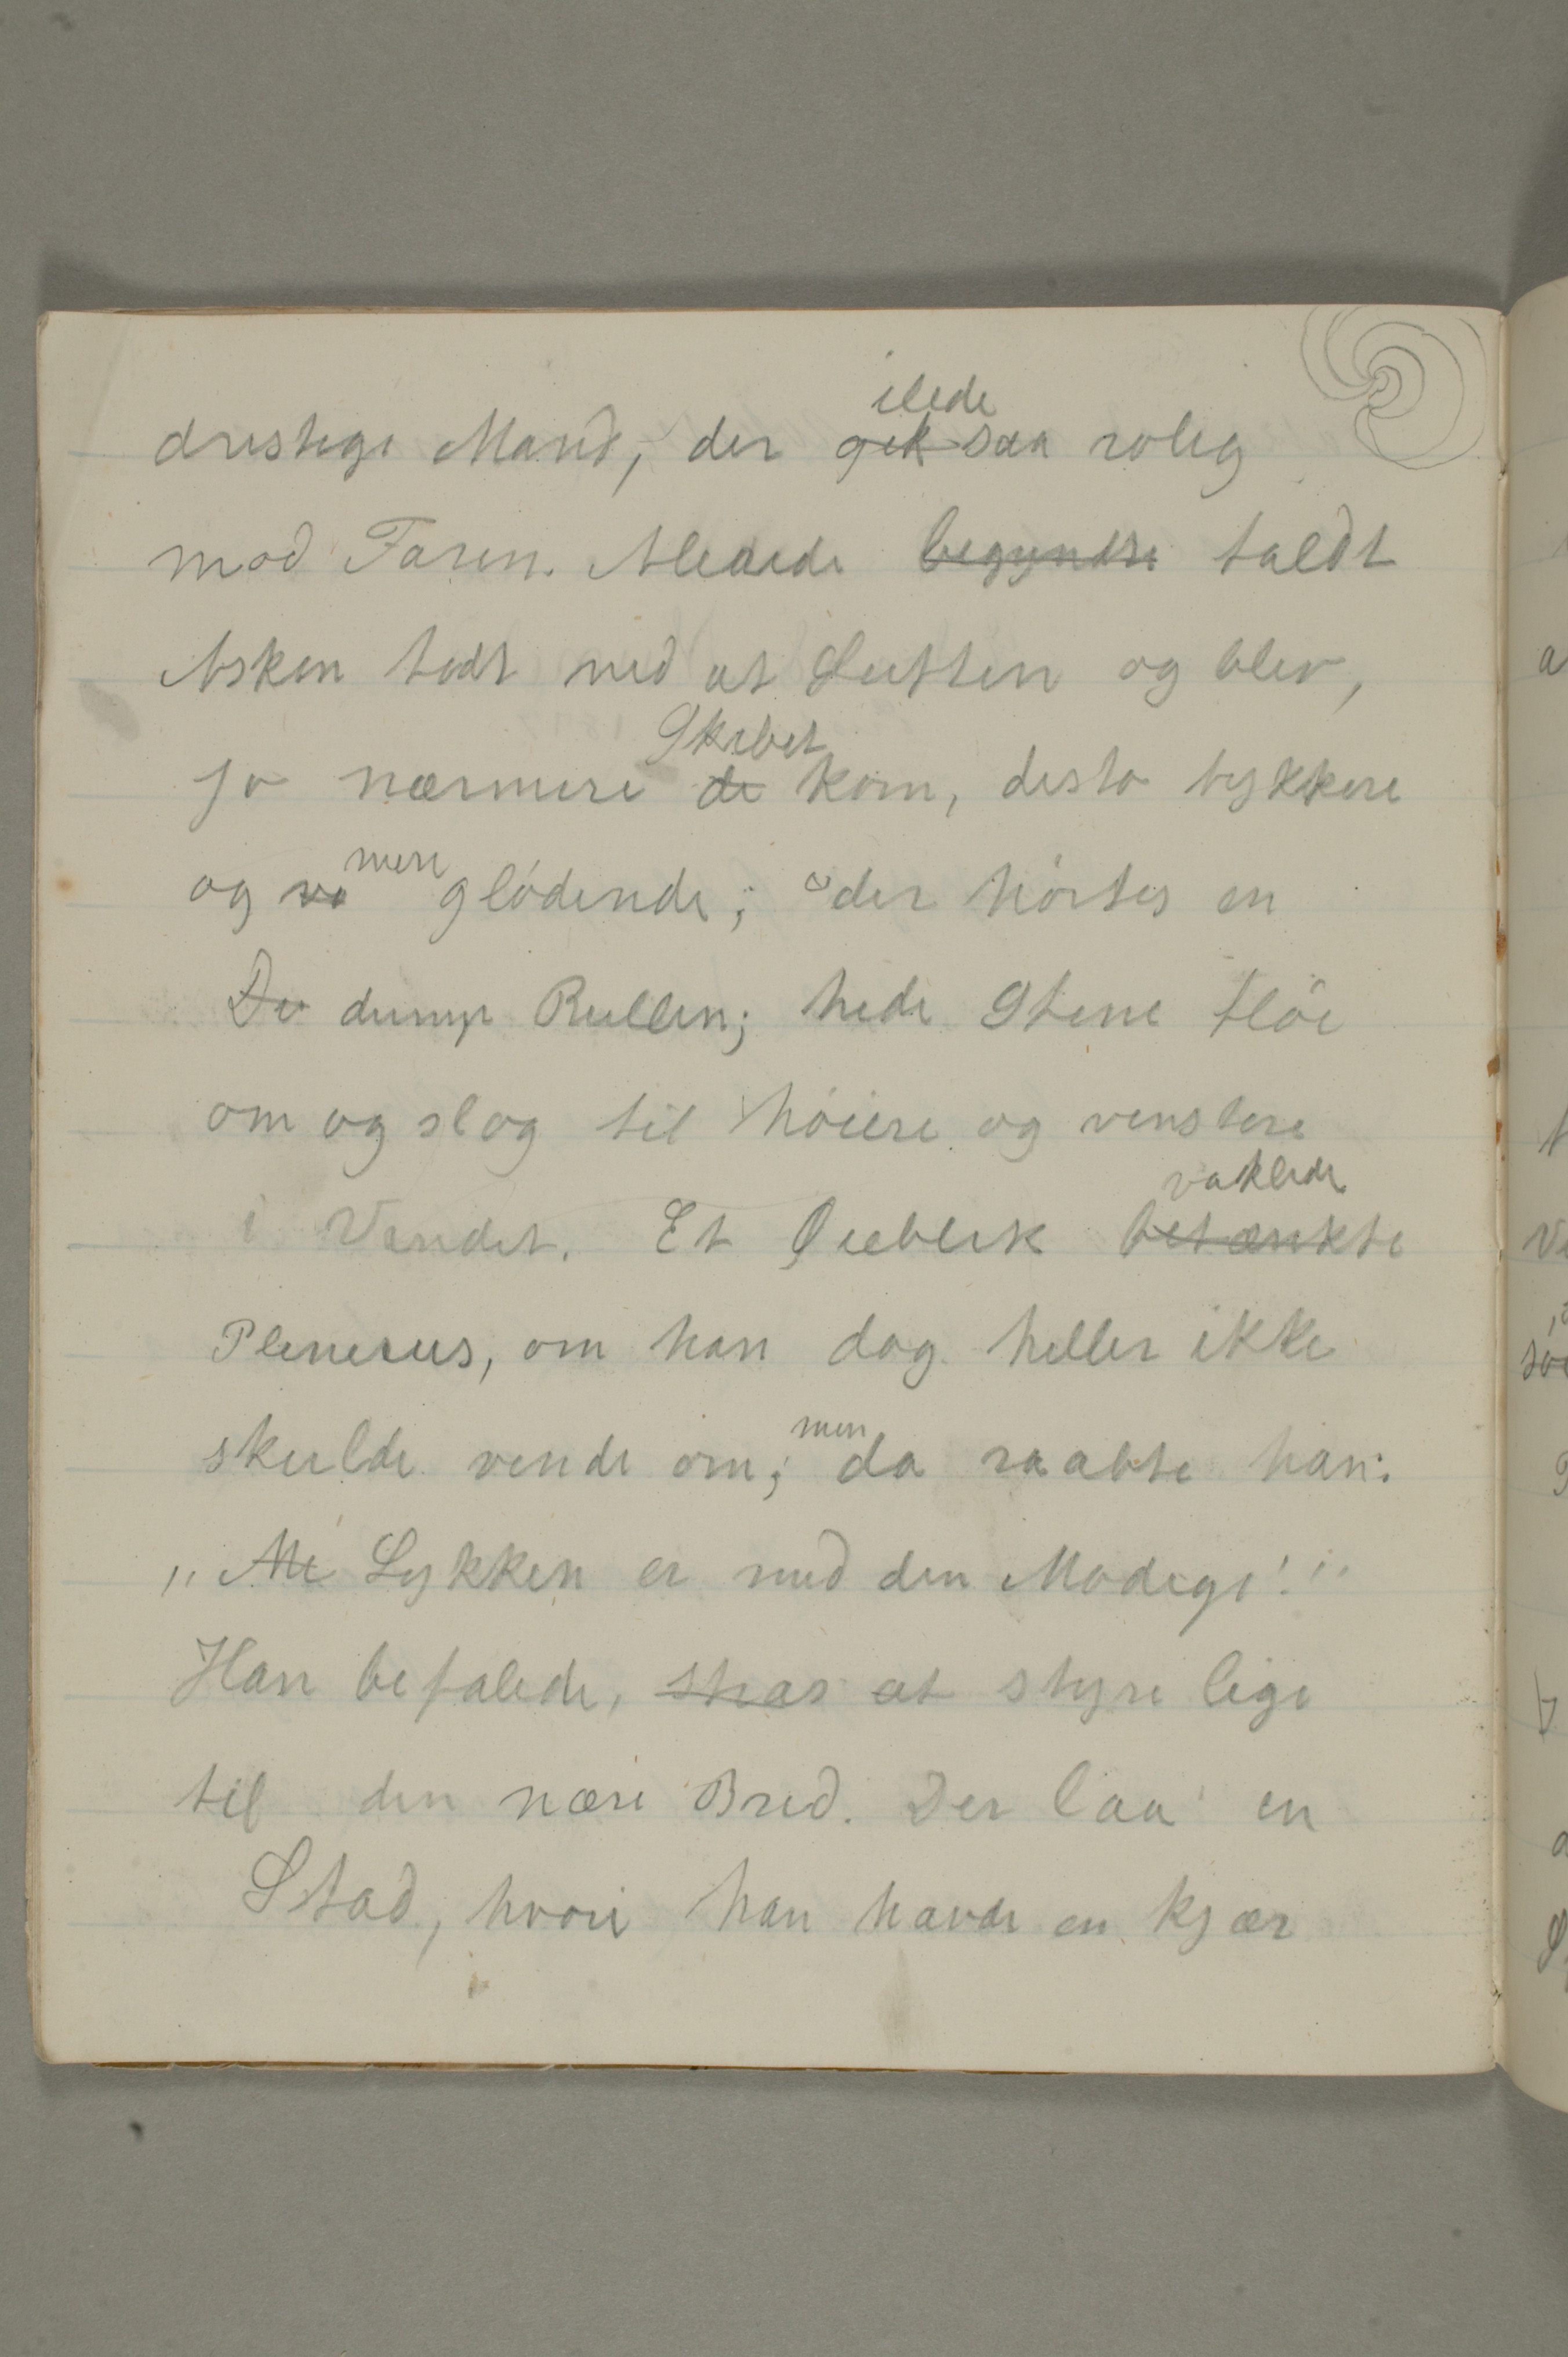 ilede
dristige Mand, der gik saa rolig
mod Faren. Allerede begyndte faldt
Asken tædt ned af Luften og blev,
Skibet
jo nærmere de kom, desto tykkere
mere
og glödende; der hörtes en
De dump Rullen; hede Stene flöi
om og slog til höiere og venstere
vaklede
i Vandet. Et Øieblik betænkte
Plenerus, om han dog heller ikke
men
skulde vende om; da raabte han:
„ Lykken er med den Modige!“
Han befalede, strax at styre lige
til den nære Bred. Der laa en
Stad, hvori han havde en kjær